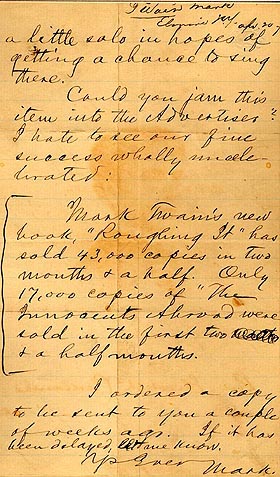 Twain Mark
Apr 20
a little solo in hopes of
getting a chance to sing
there.
Could you jam this
item into the Advertiser?
I hate to see our fine
success wholly uncele-
brated:
Mark Twain's new
book, "Roughing It" has
sold 43,000 copies in two
months & a half. Only
17,000 copies of "The
Innocents Abroad were
sold in the first two
& a half months.
I ordered a copy
to be sent to you a couple
of weeks ago. If it has
been delayed, let me know.
Yrs Ever
Mark.